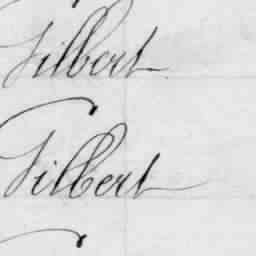 Filbert
Filbert